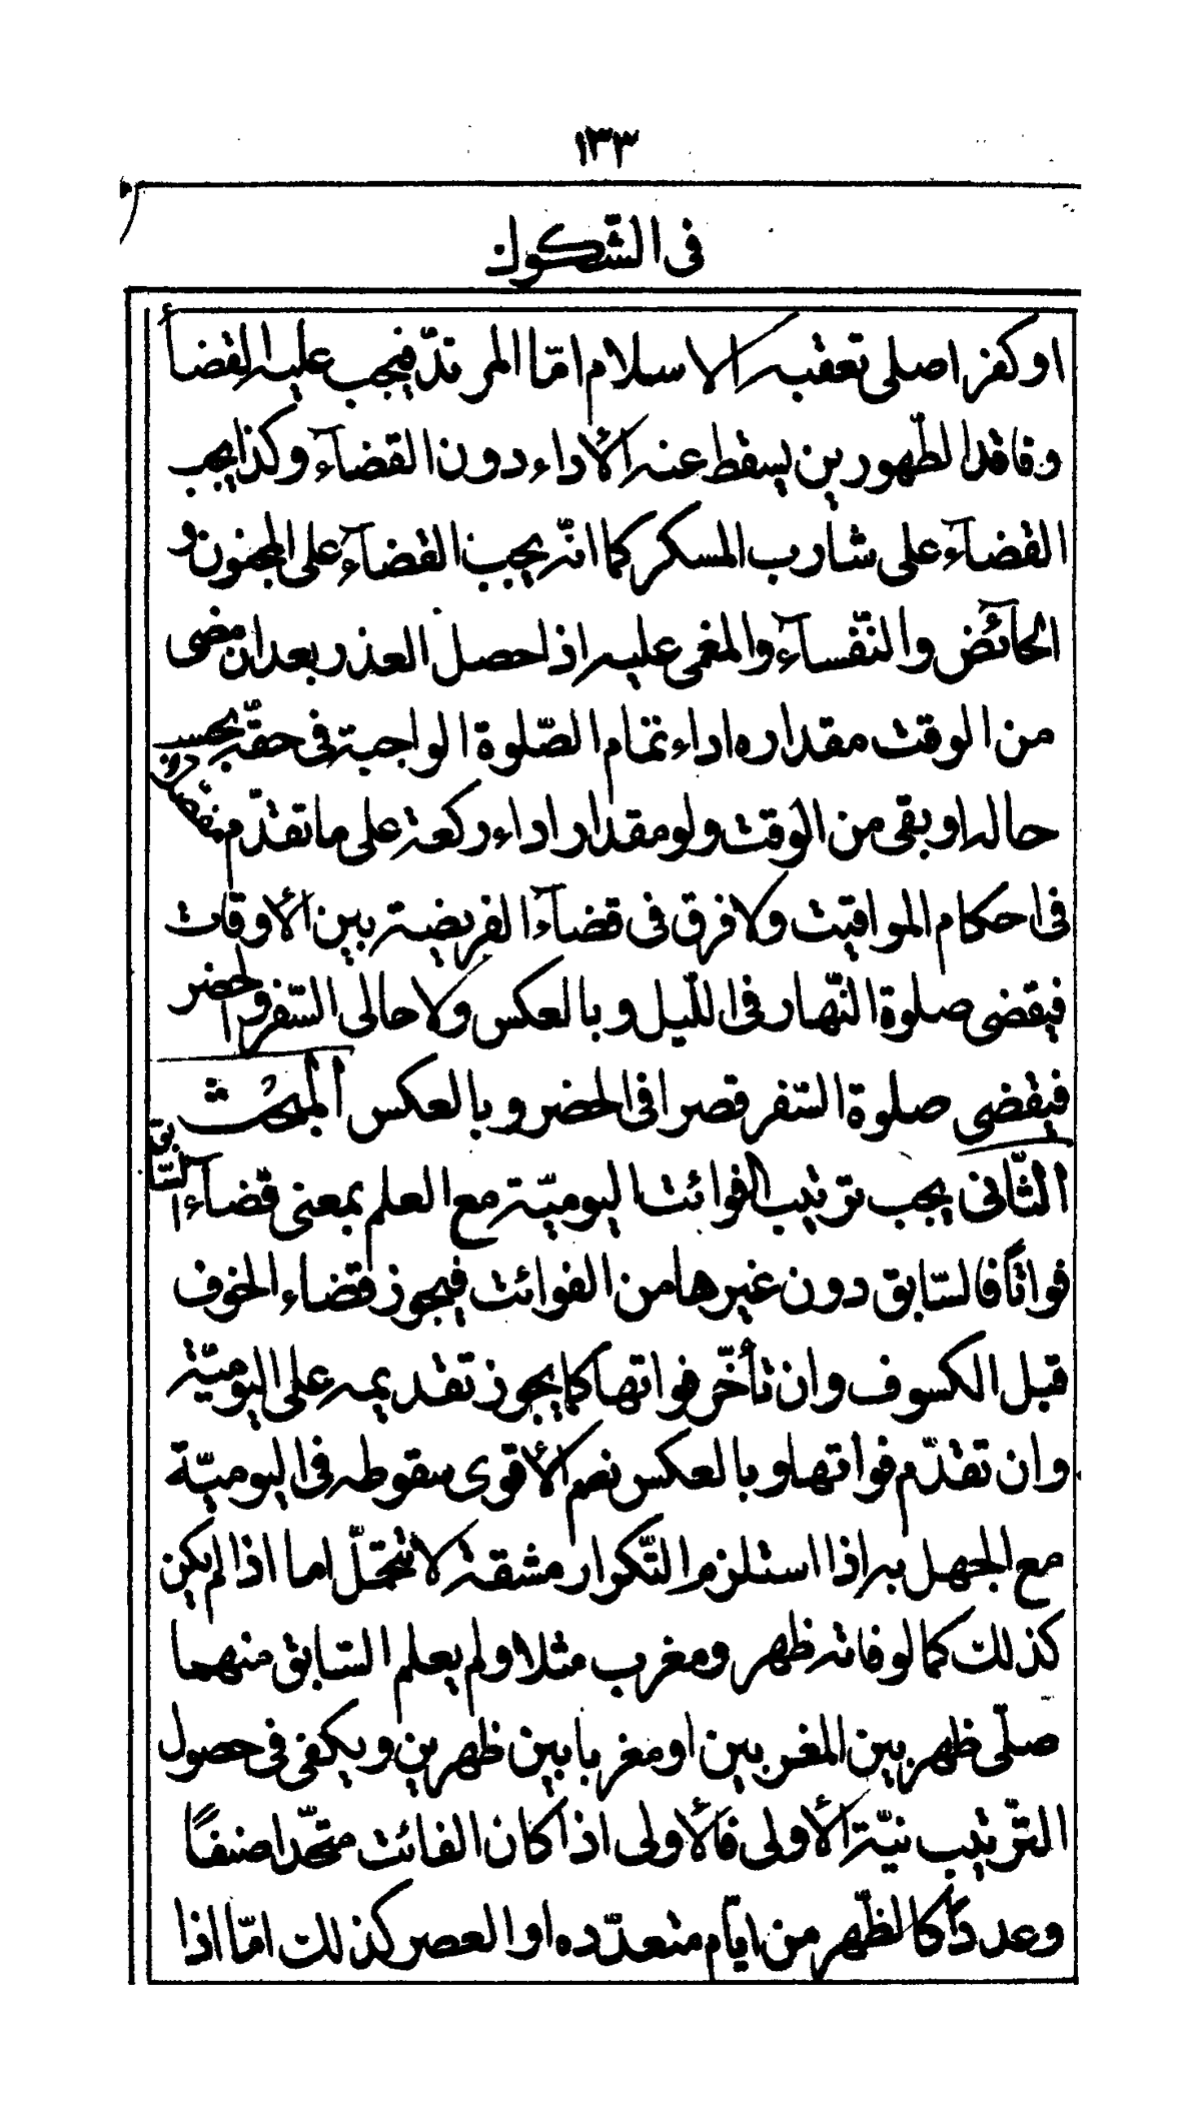 ١٣٣
فى الشّكوك
او كفر اصلى تعقبه الاسلام امّا المرتدّ فيجب عليه القضأ
وفاقد الطّهورين يسقط عنه الأداء دون القضآء وكذا يجب
القضآء على شارب المسكر كما انّه يجب القضآء على المجنون و
الحآئض والنّفسآء والمغمى عليه اذا حصل العذر بعد ان مضى
من الوقت مقداره اداء تمام الصّلوة الواجبة فى حقّه بحسب
حاله او بقى من الوقت ولو مقدار اداء ركعة على ما تقدّم مفصّلا
فى احكام المواقيت ولا فرق فى قضآء الفريضة بين الأوقات
فيقضى صلوة النّهار فى اللّيل وبالعكس ولا حالى السّفر والحضر
فيقضى صلوة السّفر قصرا فى الحضر وبالعكس المبحث
الثّانى يجب ترتيب الفوائت اليوميّة مع العلم بمعنى قضآء السّابق
فواتًا فالسّابق دون غيرها من الفوائت فيجوز قضاء الخوف
قبل الكسوف وان تأخّر فواتها كما يجوز تقديمه على اليوميّة
وان تقدّم فواتها وبالعكس نعم الأقوى سقوطه فى اليوميّة
مع الجهل به اذا استلزم التّكرار مشقة لا تتحمّل اما اذا لم يكن
كذلك كما لو فاته ظهر ومغرب مثلا ولم يعلم السّابق منهما
صلّى ظهر بين المغربين او مغربا بين ظهرين ويكفى فى حصول
التّرتيب نيّة الأولى فالأولى اذا كان الفائت متّحدا صنفًا
وعددًا كالظّهر من ايّام متعدّده او العصر كذلك امّا اذا